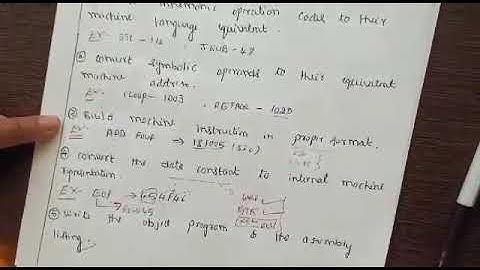 mnemonic operation codes to their
machine language equivalent.
Ex:- STL - 14 , JSUB - 48
② convert symbolic operands to their equivalent
machine address.
Ex:- CLOOP - 1003 , RETADR - 1020
③ Build machine instruction in proper format.
Ex:- ADD FOUR → 181005 (SIC)
④ convert the data constant to internal machine
representation.
Ex:- EOF → 454F46
⑤ write the object program & the assembly
listing.